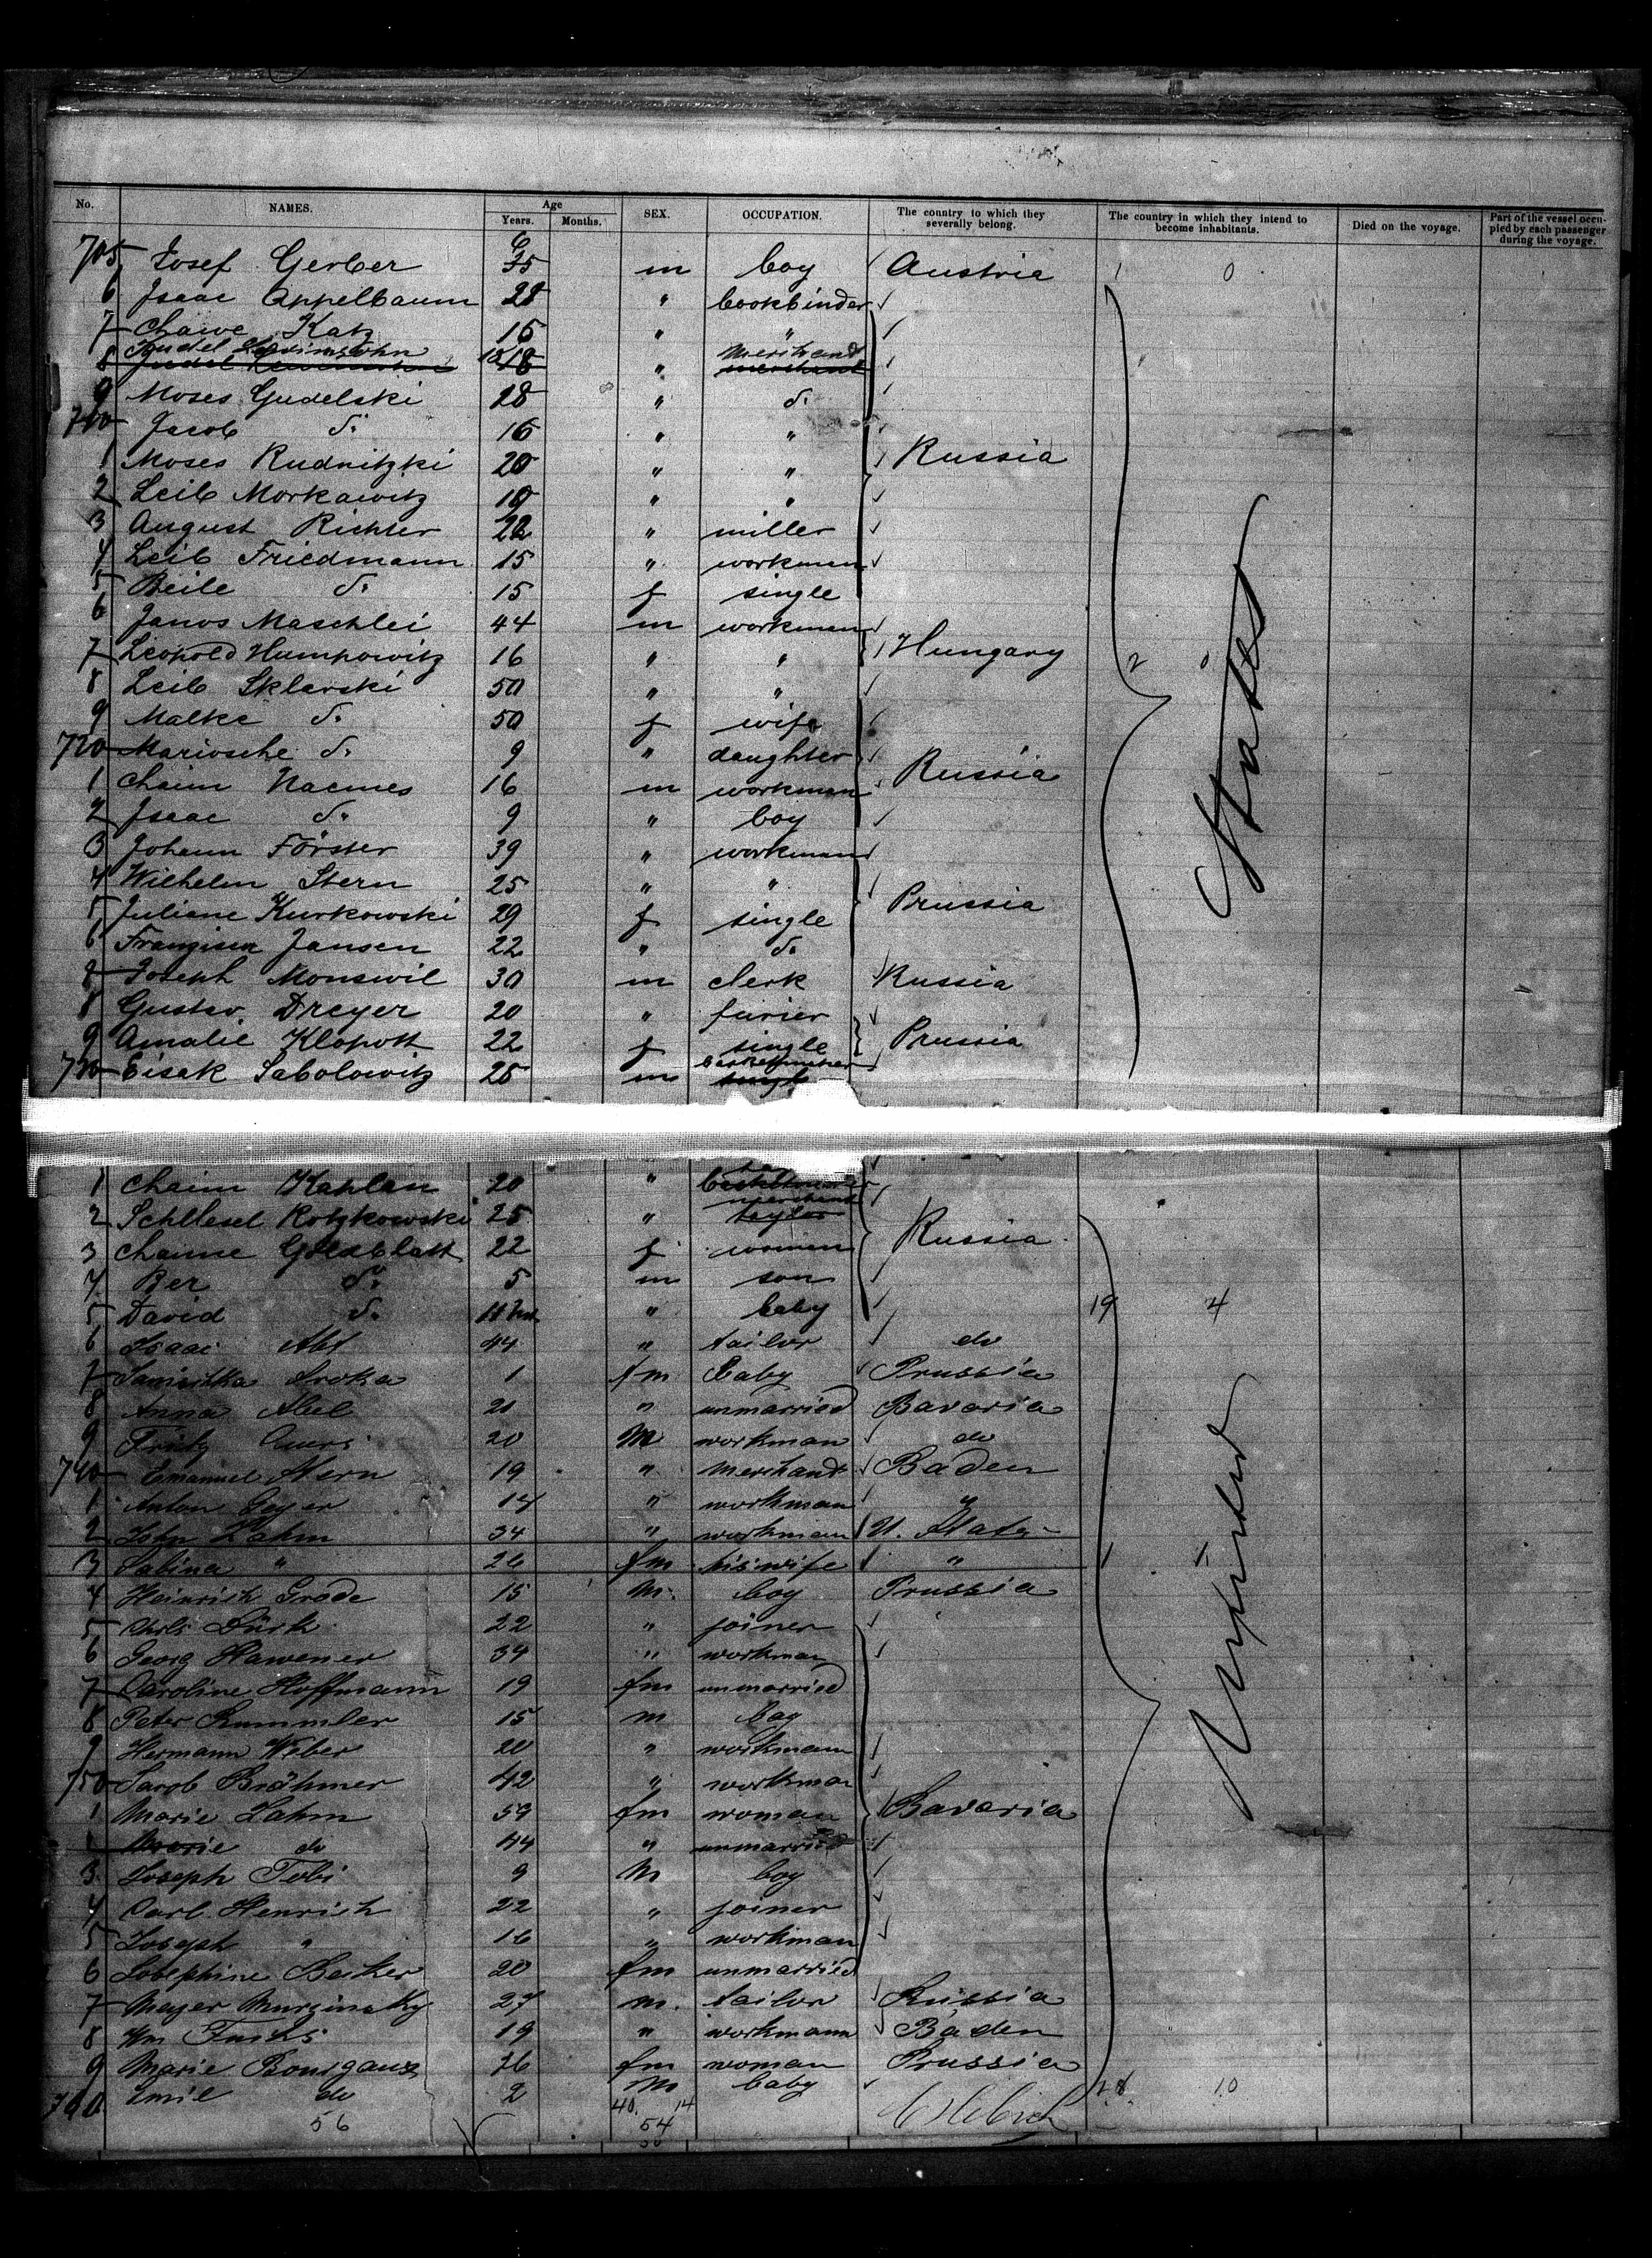 No. NAMES. Age Years. Months. SEX. OCCUPATION. The country to which they severally belong. The country in which they intend to become inhabitants. Died on the voyage. Part of the vessel occupied by each passenger during the voyage.
705 Josef Gerber m boy Austria 1 0
6 Isaac Appelbaum 28 " bookbinder
7 Chawe Katz 16 " "
8 Judel Levimsohn 18 " Merchand
9 Moses Gudelski 28 " do
710 Jacob do 16 " "
1 Moses Rudnitzki 20 " " Russia
2 Leib Morkawitz 19 " "
3 August Richter 22 " miller
4 Leib Friedmann 15 " workman
5 Beile do 15 f single
6 Janos Maschlei 44 m workman
7 Leopold Humpowitz 16 " " Hungary 2 0
8 Leib Sklarski 50 " "
9 Malke do 50 f wife
720 Mariosche do 9 " daughter
1 Chaim Nacmes 16 m workman Russia
2 Isaac do 9 " boy
3 Johann Förster 39 " workman
4 Wilhelm Stern 25 " "
5 Juliane Kurkowski 29 f single Prussia
6 Franziska Jansen 22 " do
7 Joseph Monswil 30 m clerk Russia
8 Gustav Dreyer 20 " furier
9 Amalie Klopott 22 f single Prussia
730 Eisak Sabolowitz 25 m basketmaker
States
1 Chaim Kaplan 20 "
2 Schllesel Rotzkowski 25 " merchand
3 Chainse Goldblatt 22 f women Russia
4 Ber do 5 m son
5 David do 11 " baby 19 4
6 Isaac Abt 44 " tailor do
7 Sroka 1 fm Baby Prussia
8 Anna Abel 21 " unmarried Bavaria
9 20 M workman do
740 Emanuel Stern 19 " Merchant Baden
1 Anton Geyer 14 " workman "
2 John Lahm 34 " workman U. States
3 Sabina " 26 fm his wife "
4 Heinrich Grode 15 M. boy Prussia
5 22 " joiner
6 Georg Hawener 34 " workman
7 Caroline Hoffmann 19 fm unmarried
8 Peter Rummler 15 m boy
9 Hermann Weber 20 " workman
750 Jacob Brähmer 42 " workman
1 Marie Lahm 59 fm woman Bavaria
Marie do 44 " unmarried
3 Joseph Tobi 9 M boy
4 Carl Henrich 22 " joiner
5 Joseph " 16 " workman
6 Josephine Becker 20 fm unmarried
7 Meyer Murzinsky 27 m. tailor Russia
8 Wm Fuchs 19 " workmann Baden
9 Marie Bourgaux 26 fm woman Prussia
760 Emil do 2 M baby 10
United
56 40 14
54